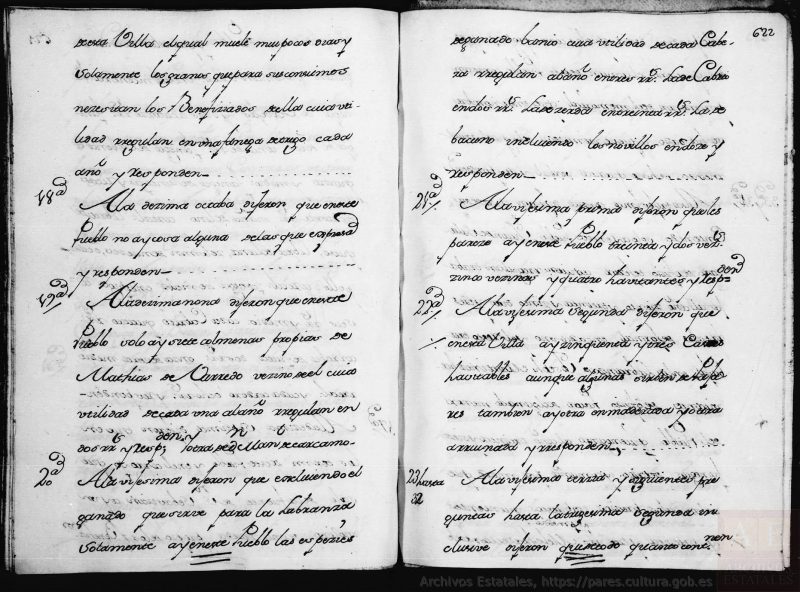 de esta Villa el qual muele mui pocos dias y
solamente los granos que para sus consumos
nezesitan los Benefiziados de ella cuia uti-
lidad rregulan en una fanega de trigo cada
año y responden
18ª
A la dezima octaba dijeron que en este
Pueblo no ay cosa alguna de las que expresa
y responden
19ª
A la dezima nona dijeron que en este
Pueblo solo ay siete colmenas propias de
Mathias de Narredo vezino de el cuia
utilidad de cada una al año rregulan en
dos rrˢ y respⁿᵈᵉⁿ
20ª
A la vijesima dijeron que excluiendo el
ganado que sirve para la Labranza
solamente ay en este Pueblo las espezies
622
de ganado banio cuia utilidad de cada Cabe-
za rregulan al año en tres rrˢ la de Cabrio
en dos rrˢ la de zerda en treinta rrˢ la de
bacuno incluiendo los novillos en doze y
responden
21ª
A la vijesima prima dijeron que les
pareze ay en este Pueblo treinta y dos vezi-
zinos vezinas y quatro havitantes y resp
22ª
A la vijesima segunda dijeron que
en esta Villa ay zinquenta y tres Casas
havitables aunque algunas sirven de Paja-
res tambien ay otra enmaderada y otra
arruinada y rresponden
23 hasta
32
A la vijesima terzia y siguientes pre
guntas hasta la trigesima segunda in
clusive dijeron que en todo quanto cont.
Archivos Estatales, https://pares.cultura.gob.es